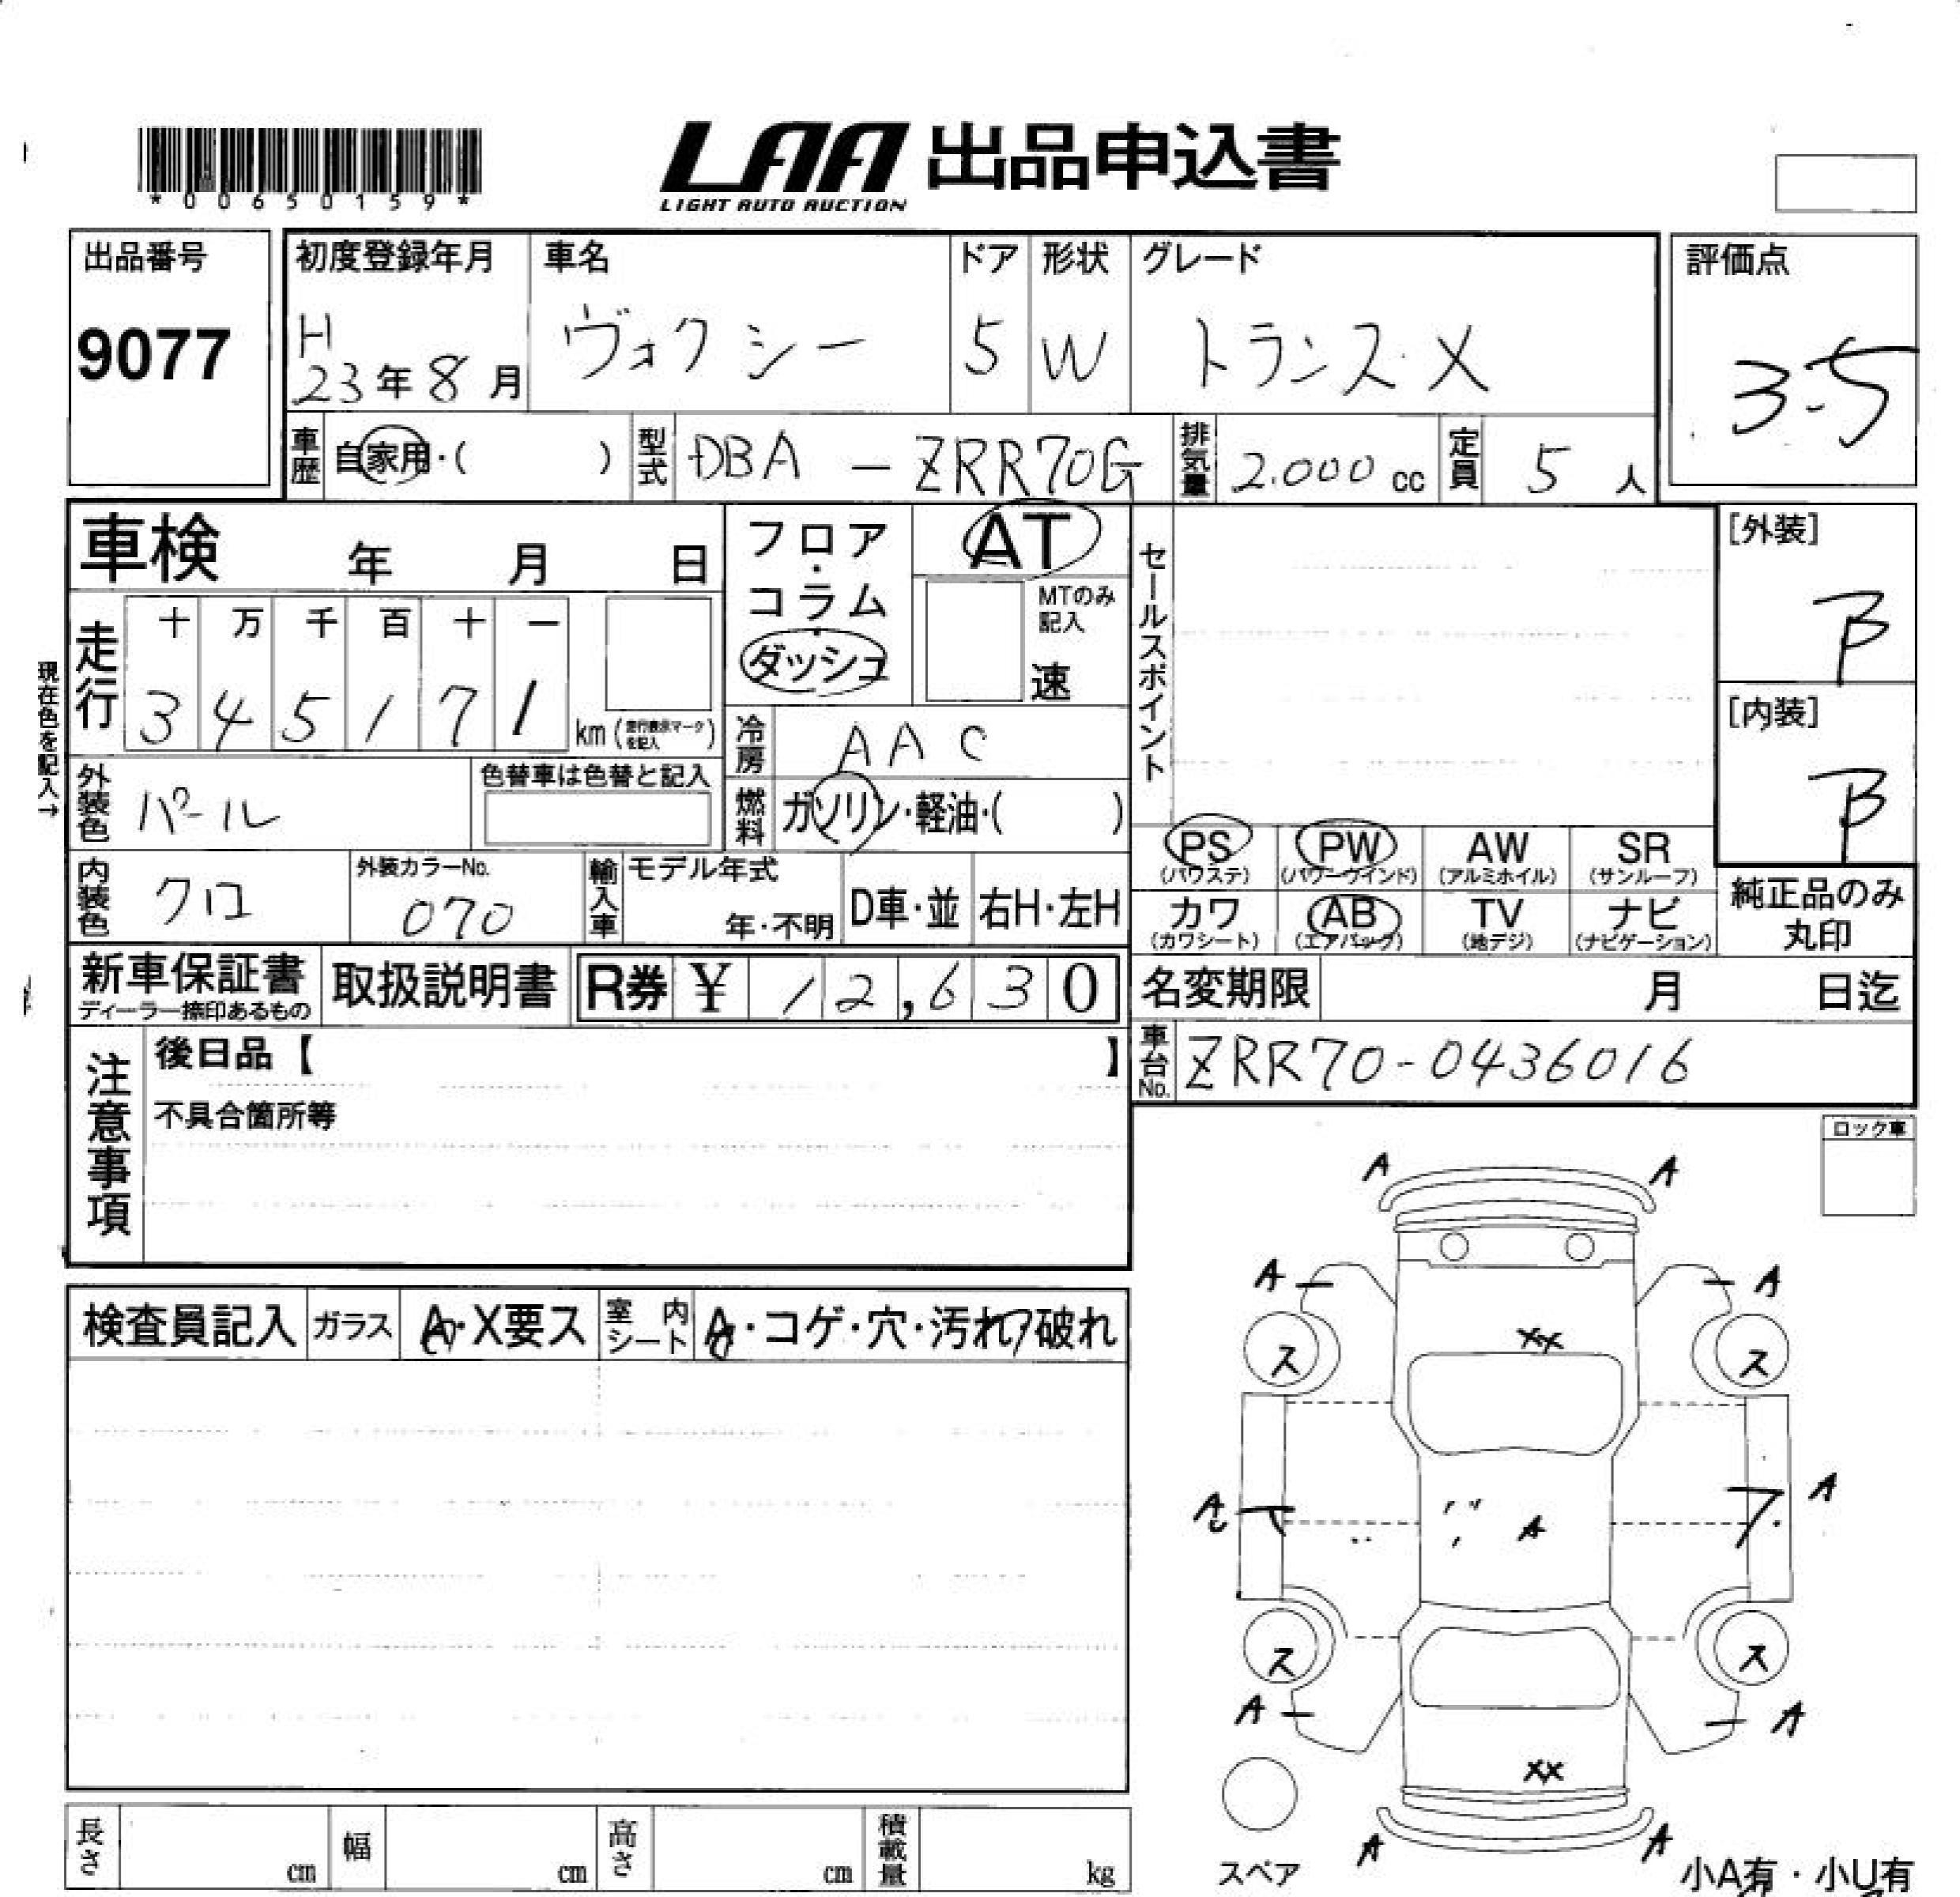 *00650159*
LAA 出品申込書
LIGHT AUTO AUCTION
出品番号
9077
初度登録年月
H
23年8月
車名
ヴォクシー
ドア
5
形状
W
グレード
トランス・X
評価点
3.5
車歴
自家用・( )
型式
DBA - ZRR70G
排気量
2.000 cc
定員
5 人
車検 年 月 日
フロア
・
コラム
・
ダッシュ
AT
MTのみ
記入
速
セールスポイント
[外装]
B
[内装]
B
現在色を記入→
走行
十 万 千 百 十 一
3 4 5 1 7 1
km (走行表示マークを記入)
冷房
AAC
外装色
パール
色替車は色替と記入
燃料
ガソリン・軽油・( )
PS
(パワステ)
PW
(パワーウインド)
AW
(アルミホイル)
SR
(サンルーフ)
内装色
クロ
外装カラーNo.
070
輸入車
モデル年式
年・不明
D車・並
右H・左H
カワ
(カワシート)
AB
(エアバッグ)
TV
(地デジ)
ナビ
(ナビゲーション)
純正品のみ
丸印
新車保証書
ディーラー捺印あるもの
取扱説明書
R券 ¥ 12,630
名変期限 月 日迄
注意事項
後日品【 】
車台No.
ZRR70-0436016
不具合箇所等
ロック車
A A
A A
検査員記入
ガラス
A・X要ス
室内シート
A・コゲ・穴・汚れ・破れ
XX
ス ス
A
A
A
ス ス
A A
XX
A A
スペア
小A有・小U有
長さ cm
幅 cm
高さ cm
積載量 kg